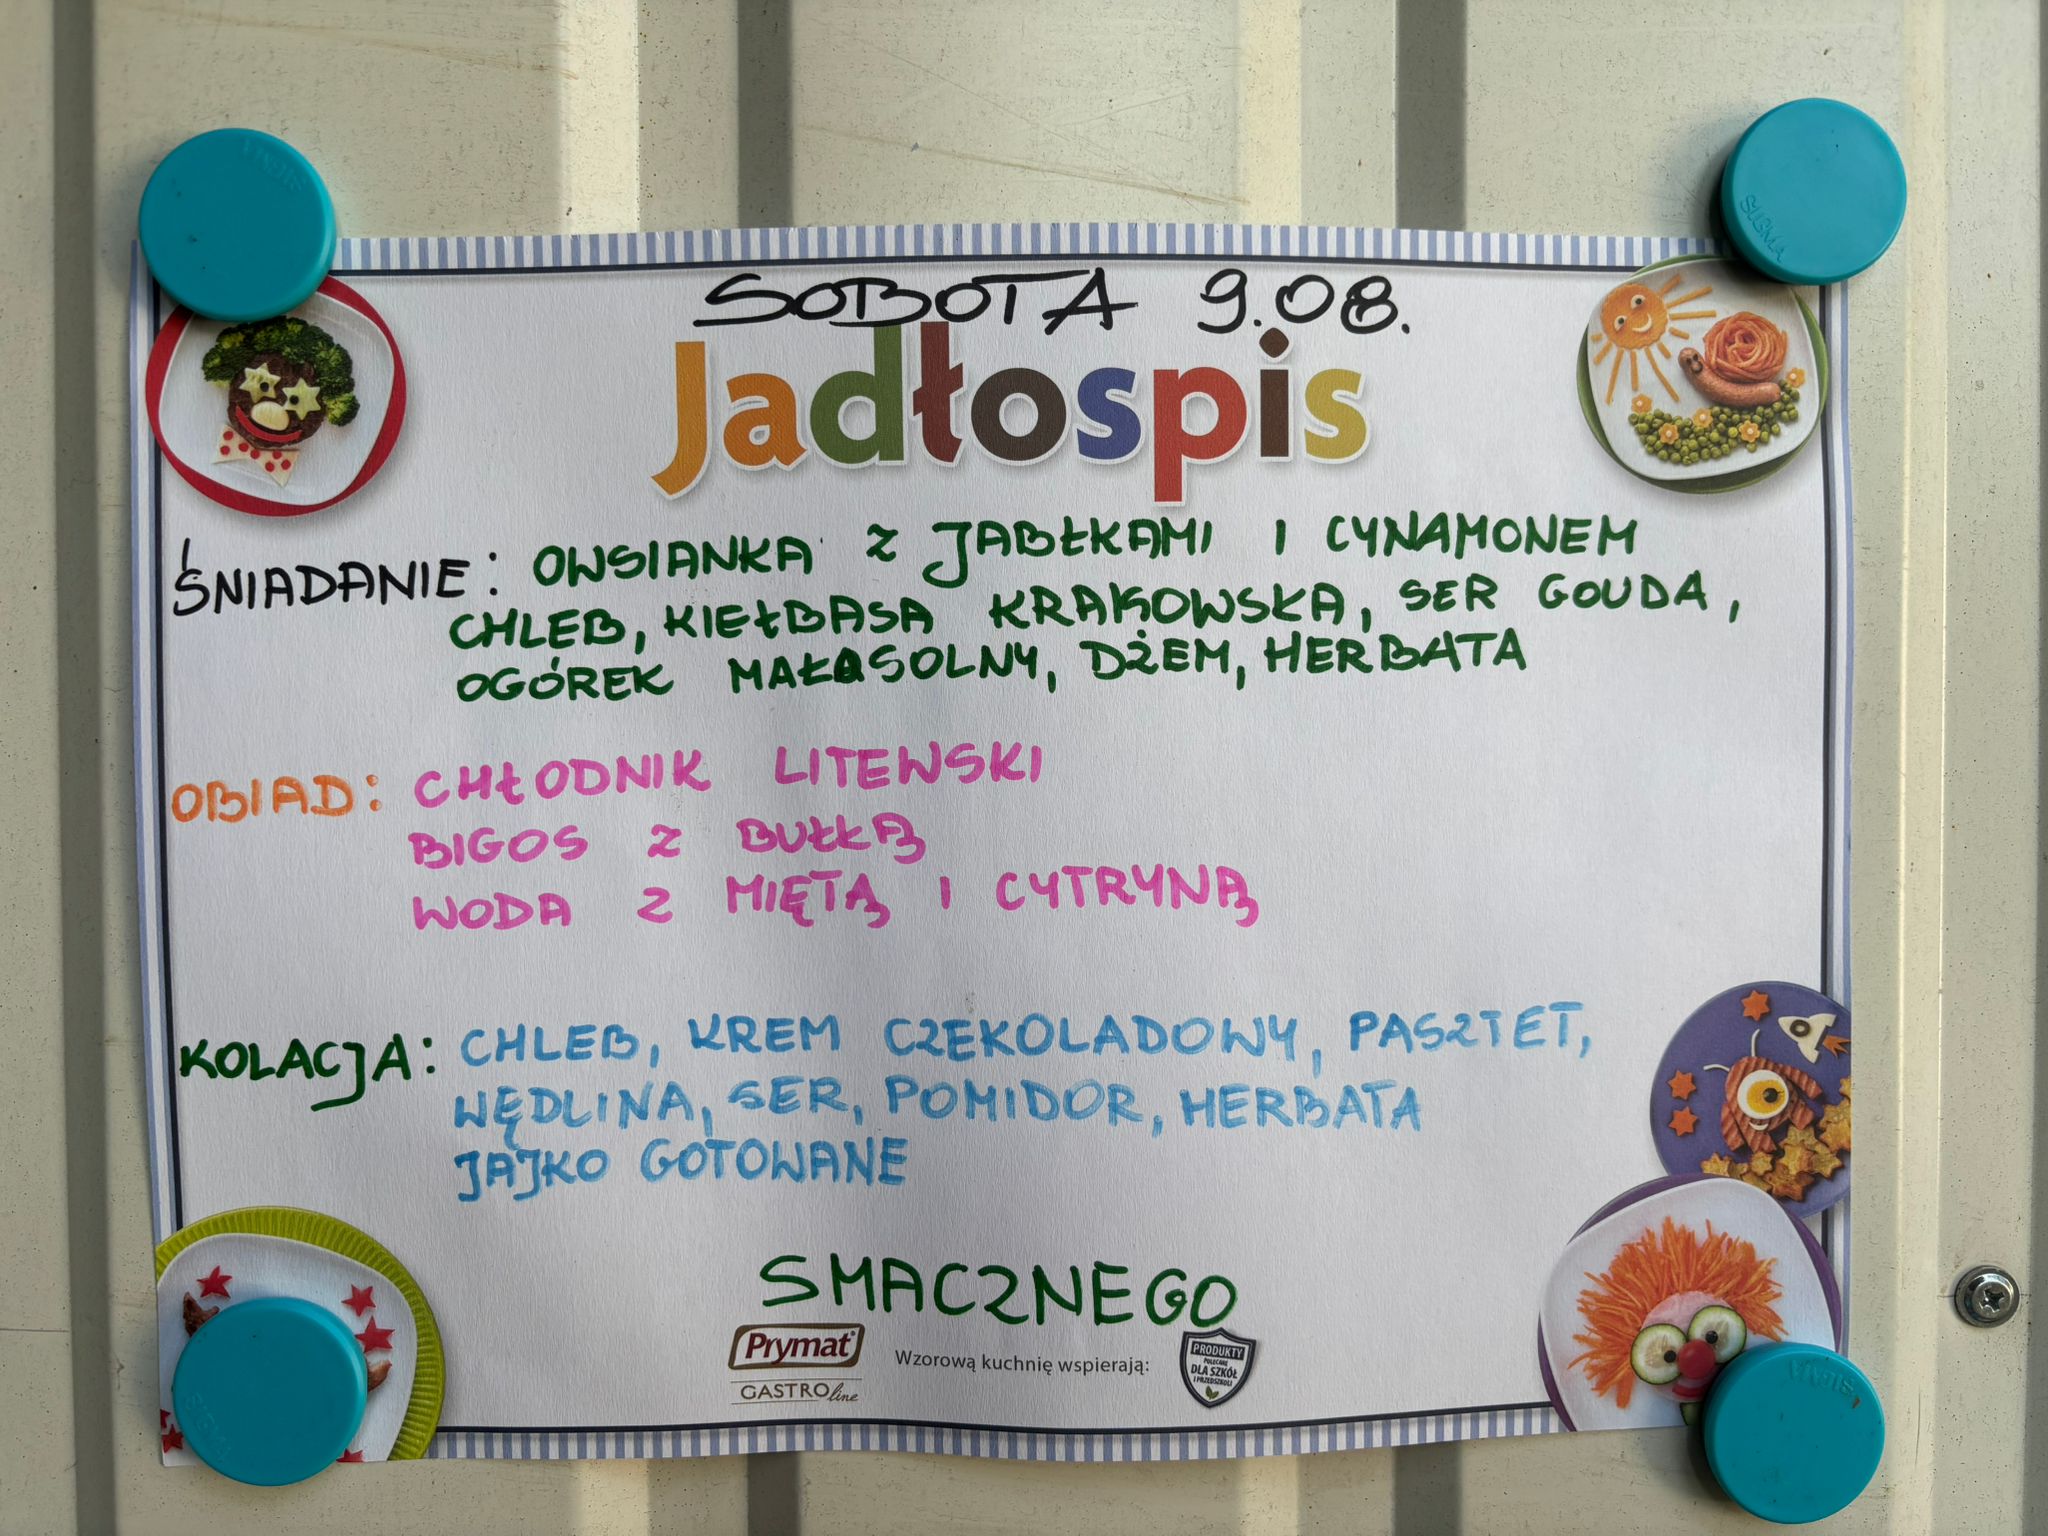 SOBOTA 9.08.
Jadłospis
ŚNIADANIE: OWSIANKA Z JABŁKAMI I CYNAMONEM
CHLEB, KIEŁBASA KRAKOWSKA, SER GOUDA,
OGÓREK MAŁOSOLNY, DŻEM, HERBATA
OBIAD: CHŁODNIK LITEWSKI
BIGOS Z BUŁKĄ
WODA Z MIĘTĄ I CYTRYNĄ
KOLACJA: CHLEB, KREM CZEKOLADOWY, PASZTET,
WĘDLINA, SER, POMIDOR, HERBATA
JAJKO GOTOWANE
SMACZNEGO
Prymat®
GASTROline
Wzorową kuchnię wspierają:
PRODUKTY
POLECANE
DLA SZKÓŁ
I PRZEDSZKOLI
SIGMA
SIGMA
SIGMA
SIGMA